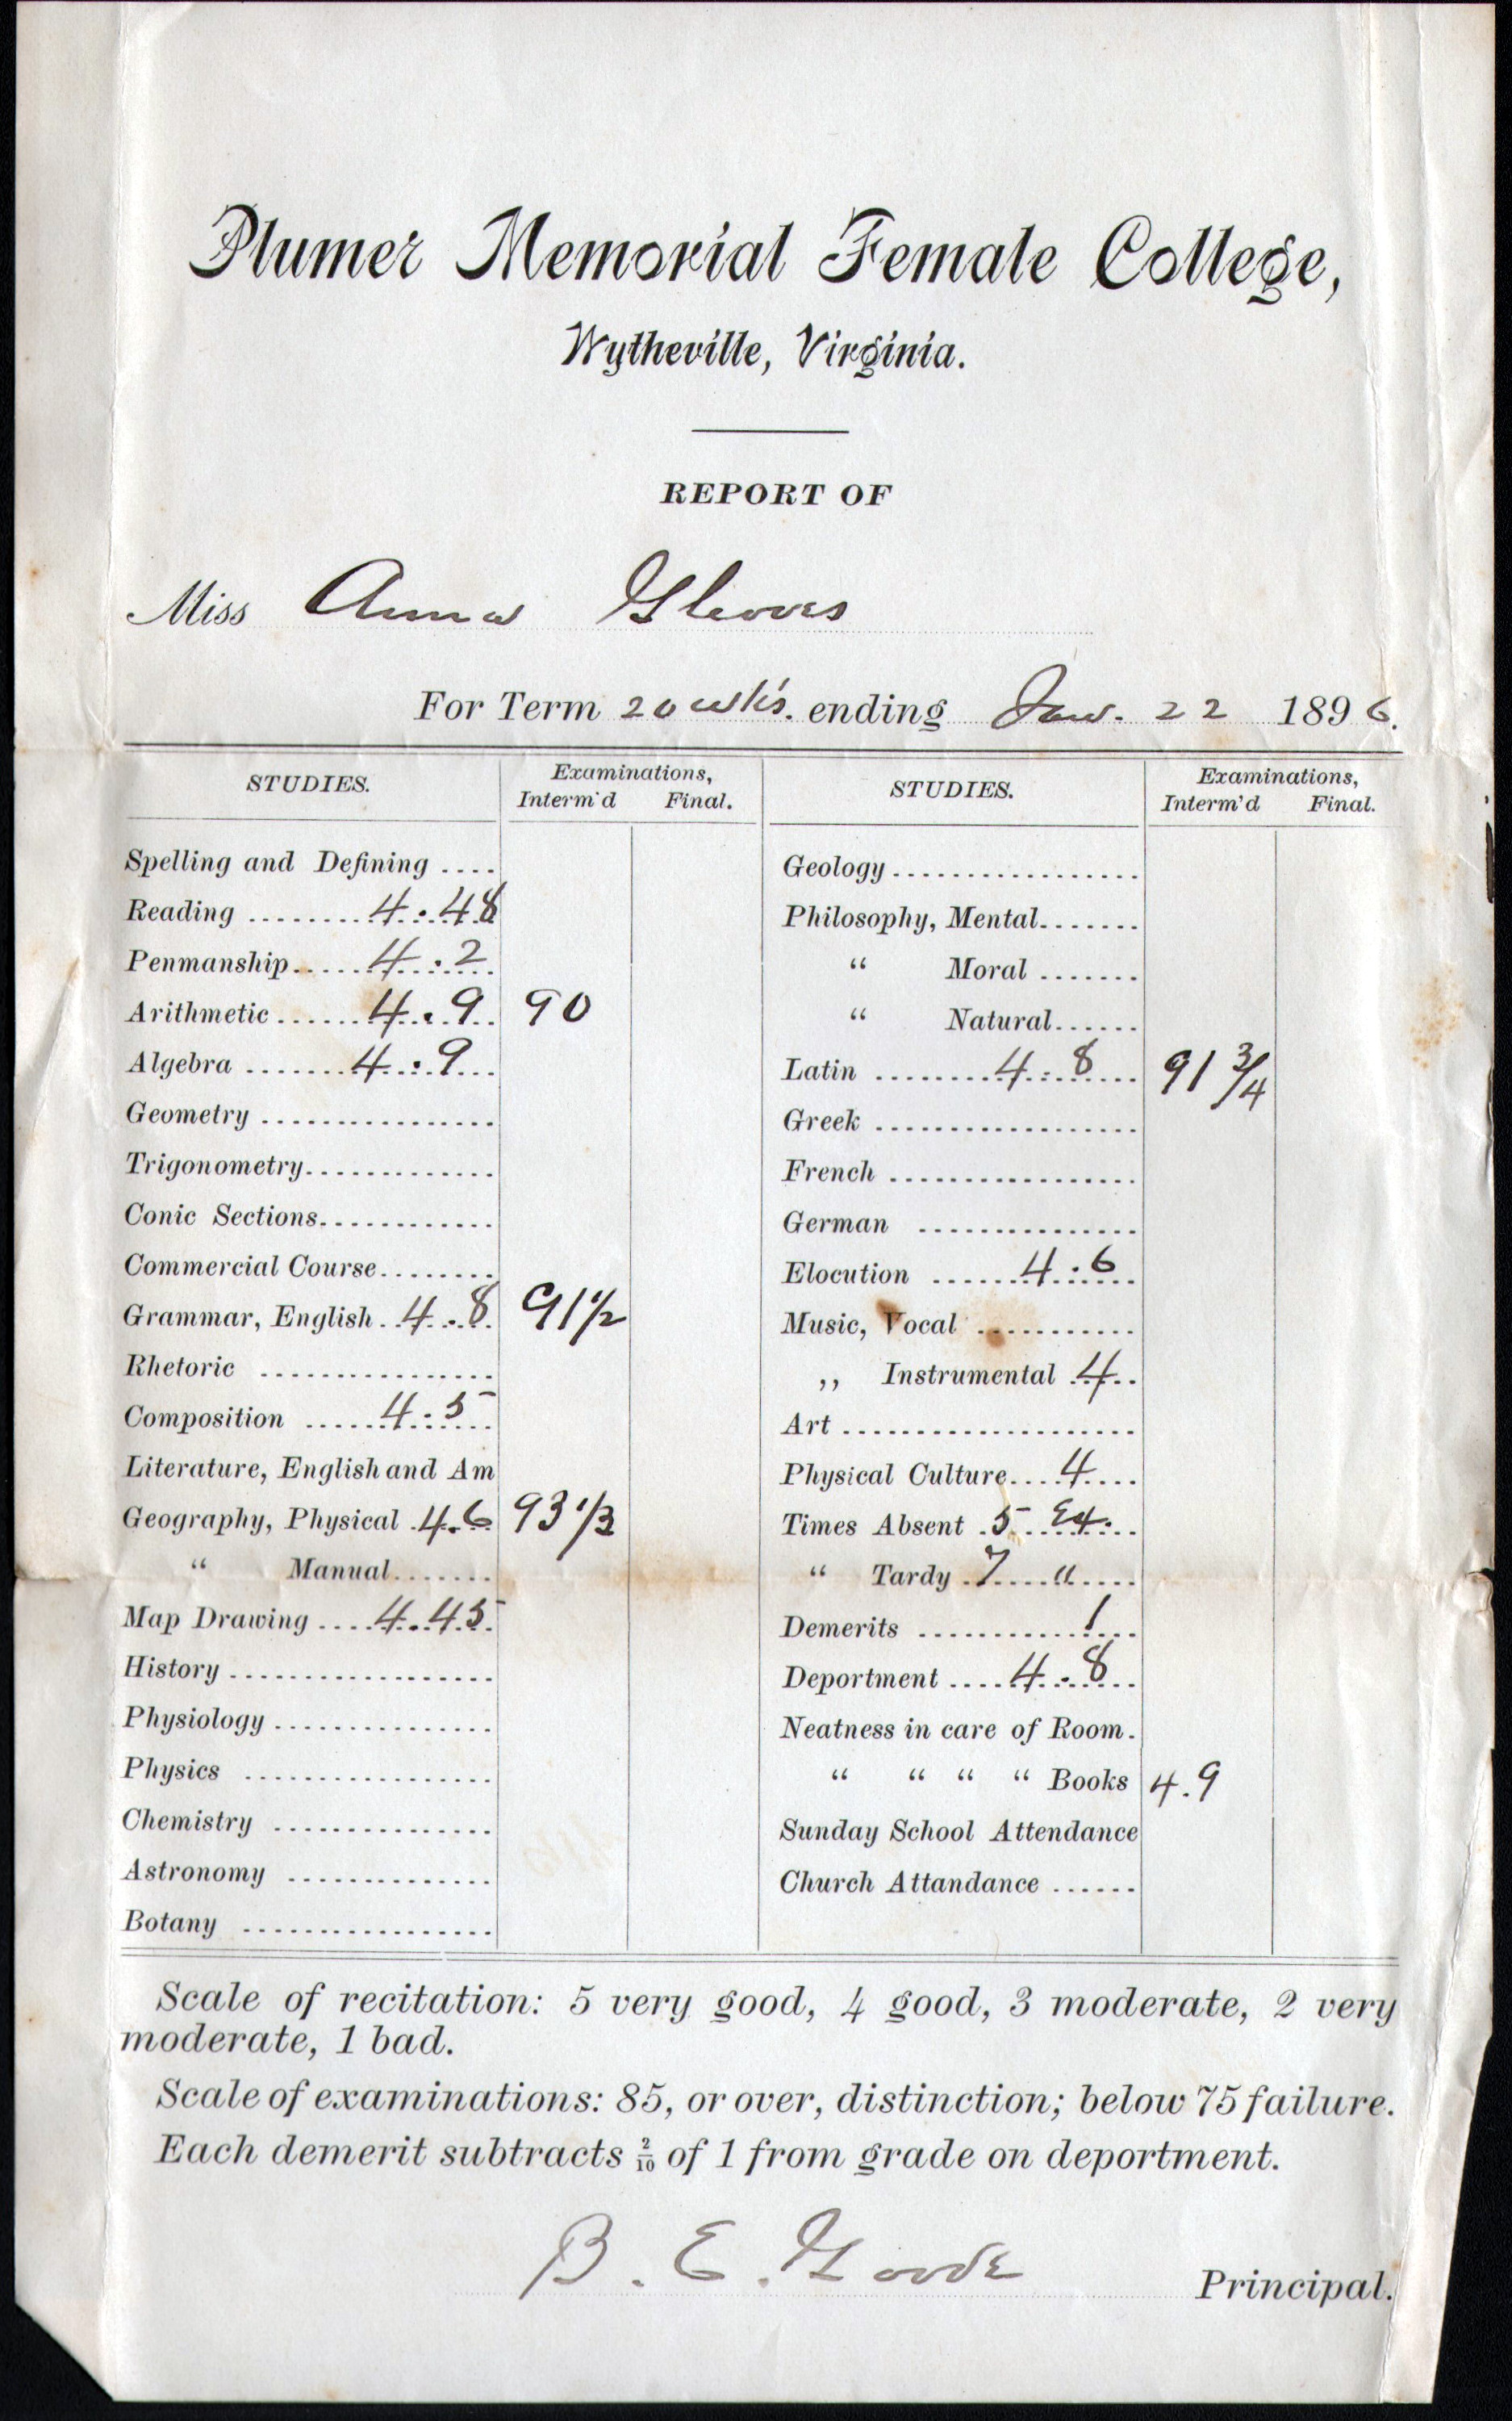 Plumer Memorial Female College,
Wytheville, Virginia.
REPORT OF
Miss Anna Gleaves
For Term 20 wk's. ending Jan. 22 1896.
STUDIES.
Examinations,
Interm'd Final.
Spelling and Defining ....
Reading ........ 4.48
Penmanship..... 4.2
Arithmetic ...... 4.9 90
Algebra ....... 4.9
Geometry ................
Trigonometry.............
Conic Sections............
Commercial Course........
Grammar, English . 4.8 91 1/2
Rhetoric ................
Composition ..... 4.5
Literature, English and Am
Geography, Physical 4.6 93 1/3
" Manual.......
Map Drawing .... 4.45
History ..................
Physiology ...............
Physics .................
Chemistry ...............
Astronomy ..............
Botany .................
STUDIES.
Examinations,
Interm'd Final.
Geology .................
Philosophy, Mental.......
" Moral .......
" Natural......
Latin ........ 4.8 91 3/4
Greek ..................
French .................
German ...............
Elocution ...... 4.6
Music, Vocal ...........
,, Instrumental 4
Art ....................
Physical Culture.... 4
Times Absent . 5 Ex.
" Tardy . 7 "
Demerits ........... 1
Deportment .... 4.8
Neatness in care of Room.
" " " " Books 4.9
Sunday School Attendance
Church Attandance ......
Scale of recitation: 5 very good, 4 good, 3 moderate, 2 very
moderate, 1 bad.
Scale of examinations: 85, or over, distinction; below 75 failure.
Each demerit subtracts 2/10 of 1 from grade on deportment.
B. E. Goode Principal.